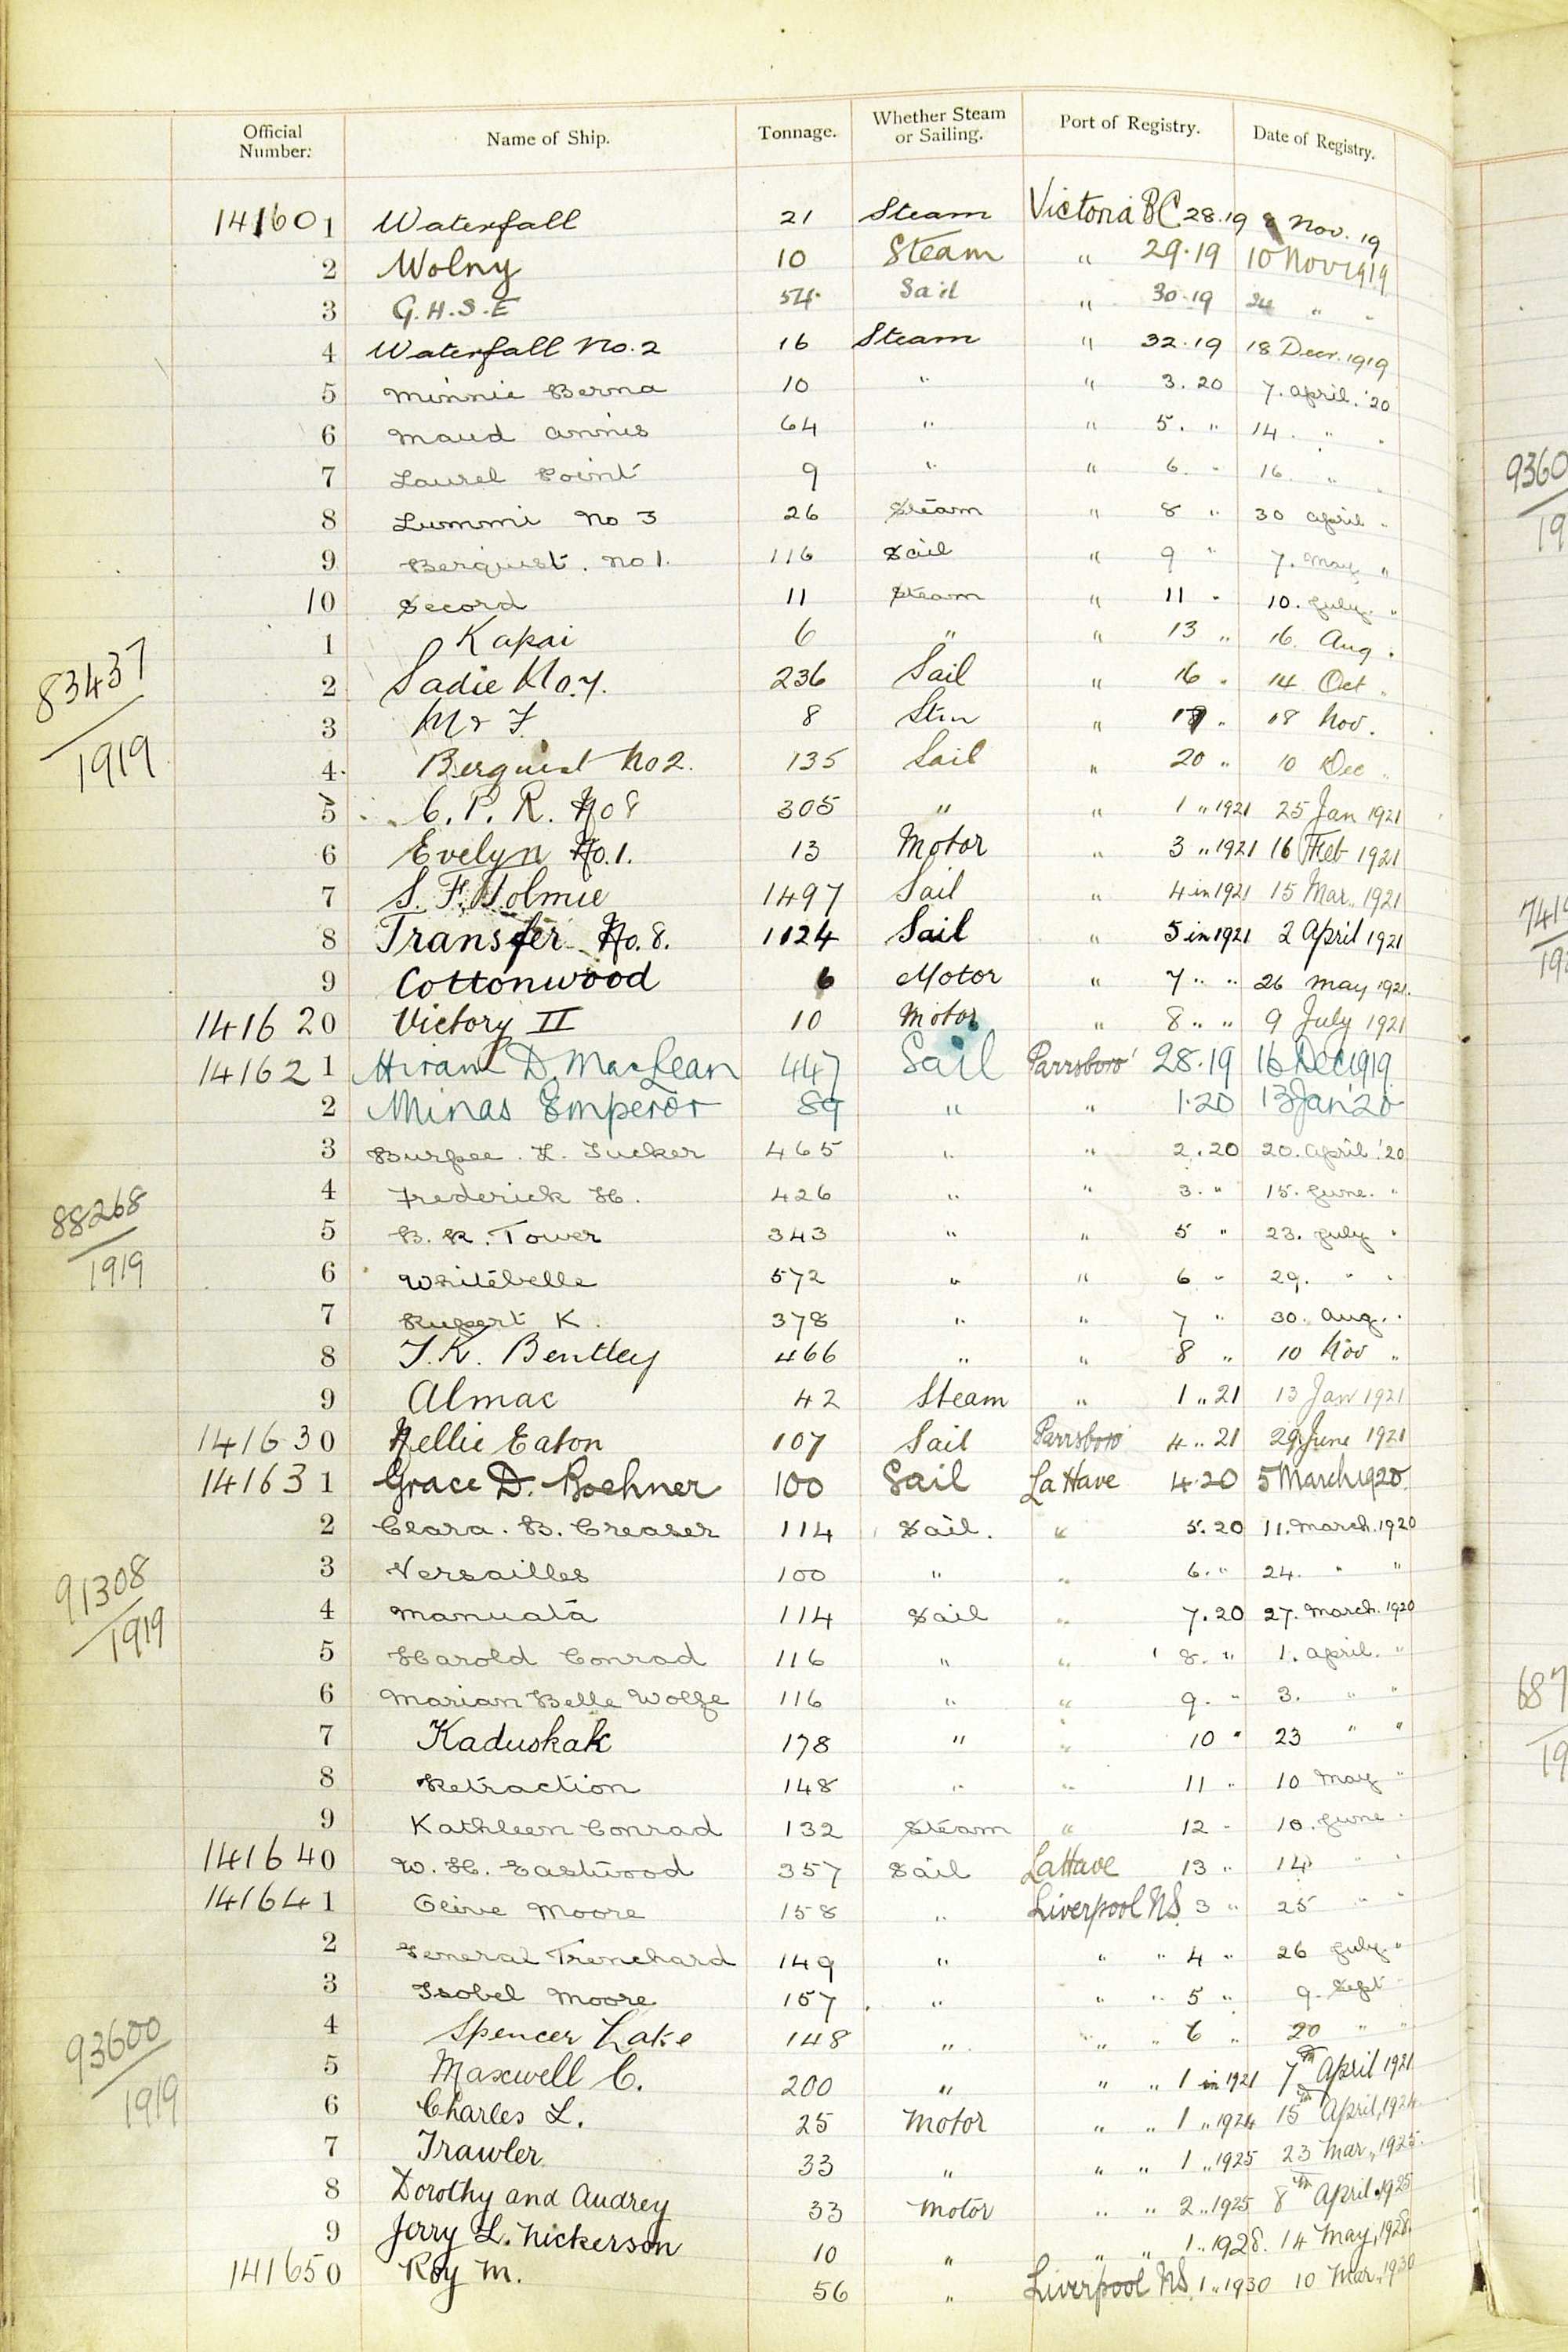 Official Number: Name of Ship. Tonnage. Whether Steam or Sailing. Port of Registry. Date of Registry.
141601 Waterfall 21 Steam Victoria BC 28.19 8 Nov. 19
2 Wolny 10 Steam " 29.19 10 Nov 1919
3 G.H.S.E 54 Sail " 30.19 24 " "
4 Waterfall No. 2 16 Steam " 32.19 18 Decr. 1919
5 Minnie Berna 10 " " 3.20 7. April. '20
6 Maud Annis 64 " " 5. " 14. " "
7 Laurel Point 9 " " 6. " 16. " "
8 Lummi No 3 26 Steam " 8 " 30 April "
9 Berquist. No 1. 116 Sail " 9 " 7. May "
10 Secord 11 Steam " 11 " 10. July. "
1 Kapai 6 " " 13 " 16. Aug "
83437
1919
2 Sadie No. 7. 236 Sail " 16 " 14 Oct "
3 M & F. 8 Stm " " 18 Nov.
4 Berquist No 2. 135 Sail " 20 " 10 Dec "
5 C. P. R. No 8 305 " " 1 " 1921 25 Jan 1921
6 Evelyn No. 1. 13 Motor " 3 " 1921 16 Feb 1921
7 S. F. Tolmie 1497 Sail " 4 in 1921 15 Mar. 1921
8 Transfer No. 8. 1124 Sail " 5 in 1921 2 April 1921
9 Cottonwood 6 Motor " 7 " " 26 May 1921.
141620 Victory II 10 Motor " 8 " " 9 July 1921
141621 Hiram D. MacLean 447 Sail Parrsboro' 28.19 16 Dec 1919
2 Minas Emperor 89 " " 1.20 13 Jan '20
3 Burpee. L. Tucker 465 " " 2.20 20. April. '20
4 Frederick H. 426 " " 3. " 15. June. "
88268
1919
5 B. R. Tower 343 " " 5 " 23. July "
6 Whitebelle 572 " " 6 " 29. " "
7 Rupert K. 378 " " 7 " 30. Aug. "
8 T.K. Bentley 466 " " 8 " 10 Nov "
9 Almac 42 Steam " 1 " 21 13 Jan 1921
141630 Nellie Eaton 107 Sail Parrsboro 4 " 21 29 June 1921
141631 Grace D. Boehner 100 Sail La Have 4.20 5 March 1920.
2 Clara. B. Creaser 114 Sail. " 5.20 11. March. 1920
3 Versailles 100 " " 6. " 24. " "
91308
1919
4 Manuata 114 Sail " 7.20 27. March. 1920
5 Harold Conrad 116 " " 8. " 1. April. "
6 Marian Belle Wolfe 116 " " 9. " 3. " "
7 Kaduskak 178 " " 10 " 23 " "
8 Retraction 148 " " 11 " 10 May "
9 Kathleen Conrad 132 Steam " 12 " 10. June "
141640 W. H. Eastwood 357 Sail LaHave 13 " 14 " "
141641 Olive Moore 158 " Liverpool NS 3 " 25 " "
2 General Trenchard 149 " " " 4 " 26 July "
3 Isobel Moore 157 " " " 5 " 9. Sept "
4 Spencer Lake 148 " " " 6 " 20 " "
93600
1919
5 Maxwell C. 200 " " " 1 in 1921 7th April 1921
6 Charles L. 25 Motor " " 1 " 1924 15th April, 1924.
7 Trawler 33 " " " 1 " 1925 23 Mar., 1925.
8 Dorothy and Audrey 33 Motor " " 2 " 1925 8th April 1925
9 Jerry L. Nickerson 10 " " " 1 " 1928. 14 May, 1928.
141650 Roy M. 56 " Liverpool NS. 1 " 1930 10 Mar., 1930
9360
19
741
19
687
19